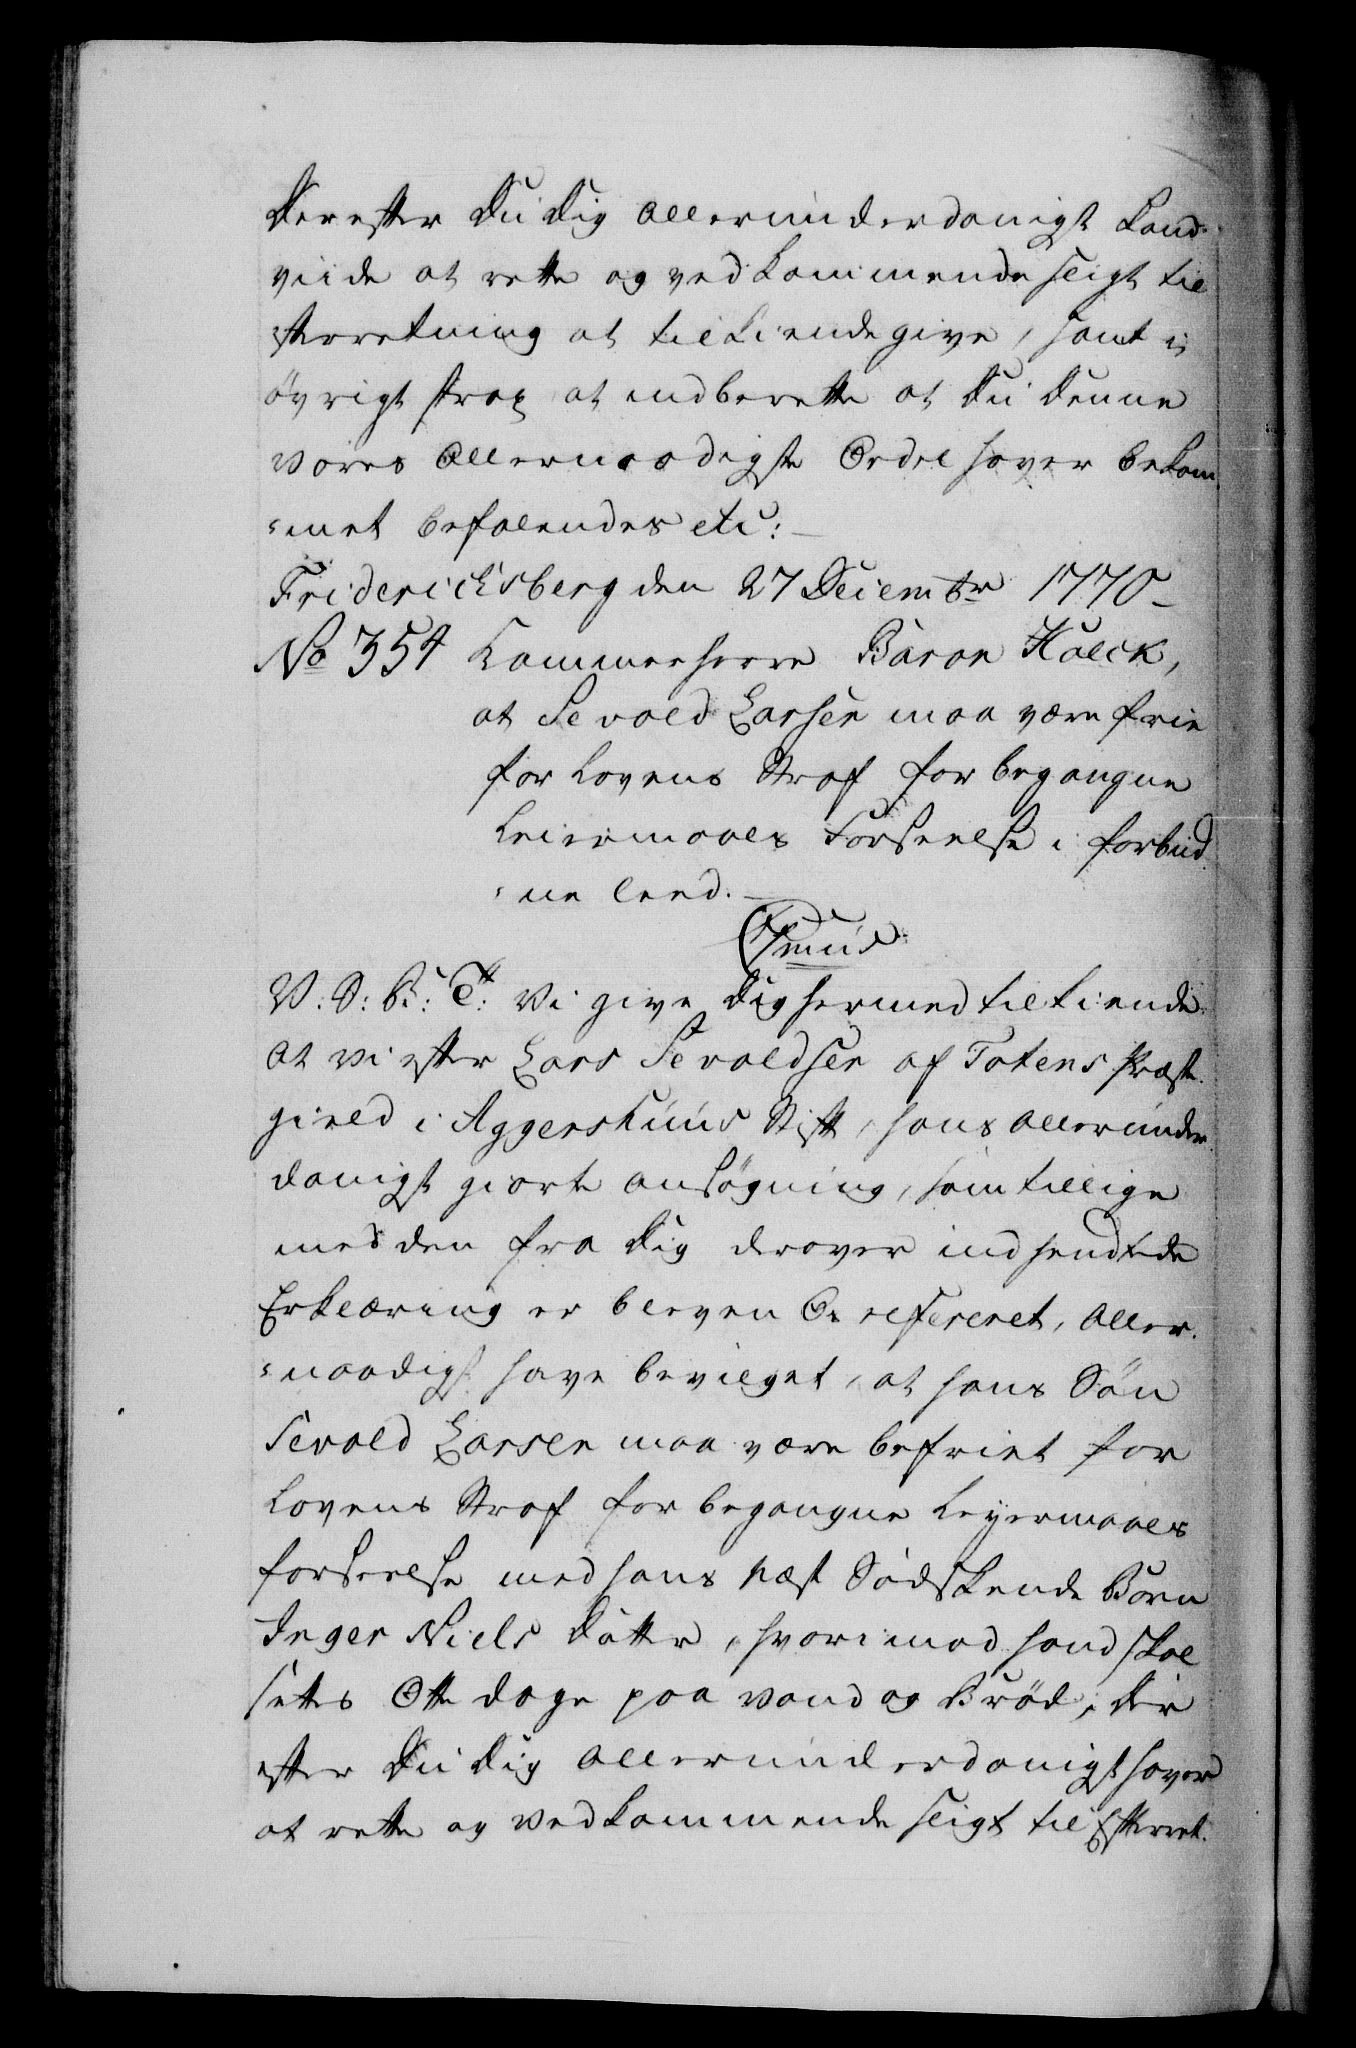 Derefter Du Dig allerunderdanigst haver
viide at rette og vedkommende sligt til
efterretning at tilkiendegive, samt i
övrigt strax at indberette at Du denne
vores allernaadigste Ordre haver bekom
=met befalendes etc:
Fridericksberg den 27 Deiembr 1770
No 354 Kammerherre Baron Huleck,
at Sevald Larsen maa være frie
for Lovens Straf for begangne
Leiermaals Forseelse i forbud
=ne leed.
V: S: G: T: Vi give Dig hermed tilkiende
at vi efter Lars Sevaldsen af Totens Præste
gield i Aggershuus Stift, hans allerunder
danigst giorte ansögning, som tillige
med den fra Dig derover indsendtede
Erklæring er bleven Os refereret, aller
=naadigst have bevilget, at hans Sön
Sevald Larsen maa være befriet for
Lovens Straf for begangne Leyermaals
forseelse med hans næst Södskende Børn
Inger Niels Datter, hvorimod hand skal
settes Otte dage paa vand og Bröd, der
efter Du Dig allerunderdanigst haver
at rette og vedkommende sligt til Efterret